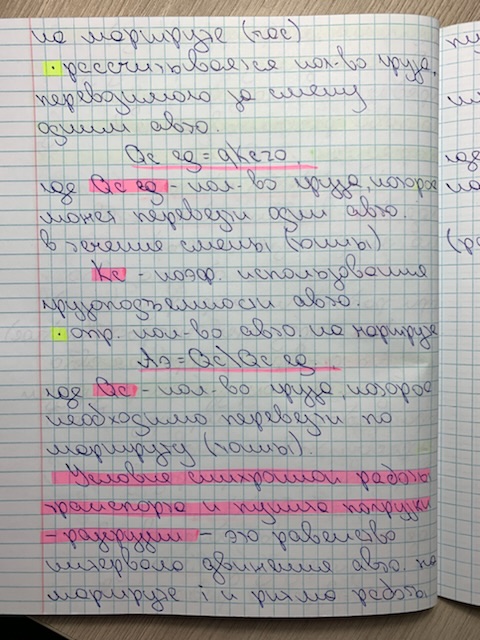 на маршруте (час)
· рассчитывается кол-во груза,
перевозимого за смену
одним авто.
Qс ед = qКсZо,
где Qс ед - кол-во груза, которое
может перевезти один авто.
в течение смены (тонны)
Кс - коэф. использования
грузоподъемности авто.
· опр. кол-во авто. на маршруте
Аэ = Qс\Qс ед
где Qс - кол-во груза, которое
необходимо перевезти по
маршруту (тонны).
Условие синхронной работы
транспорта и пункта погрузки
- разгрузки - это равенство
интервала движения авто. на
маршруте i и ритма работы